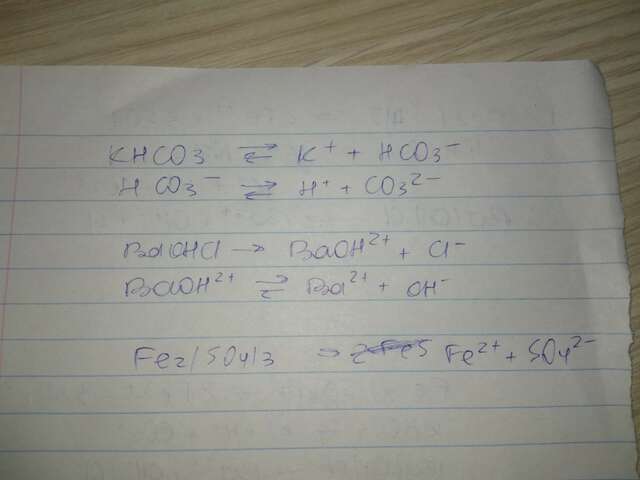 KHCO3 ⇌ K+ + HCO3-
HCO3- ⇌ H+ + CO3 2-
BaOHCl → BaOH2+ + Cl-
BaOH2+ ⇌ Ba2+ + OH-
Fe2(SO4)3 → Fe2+ + SO4 2-